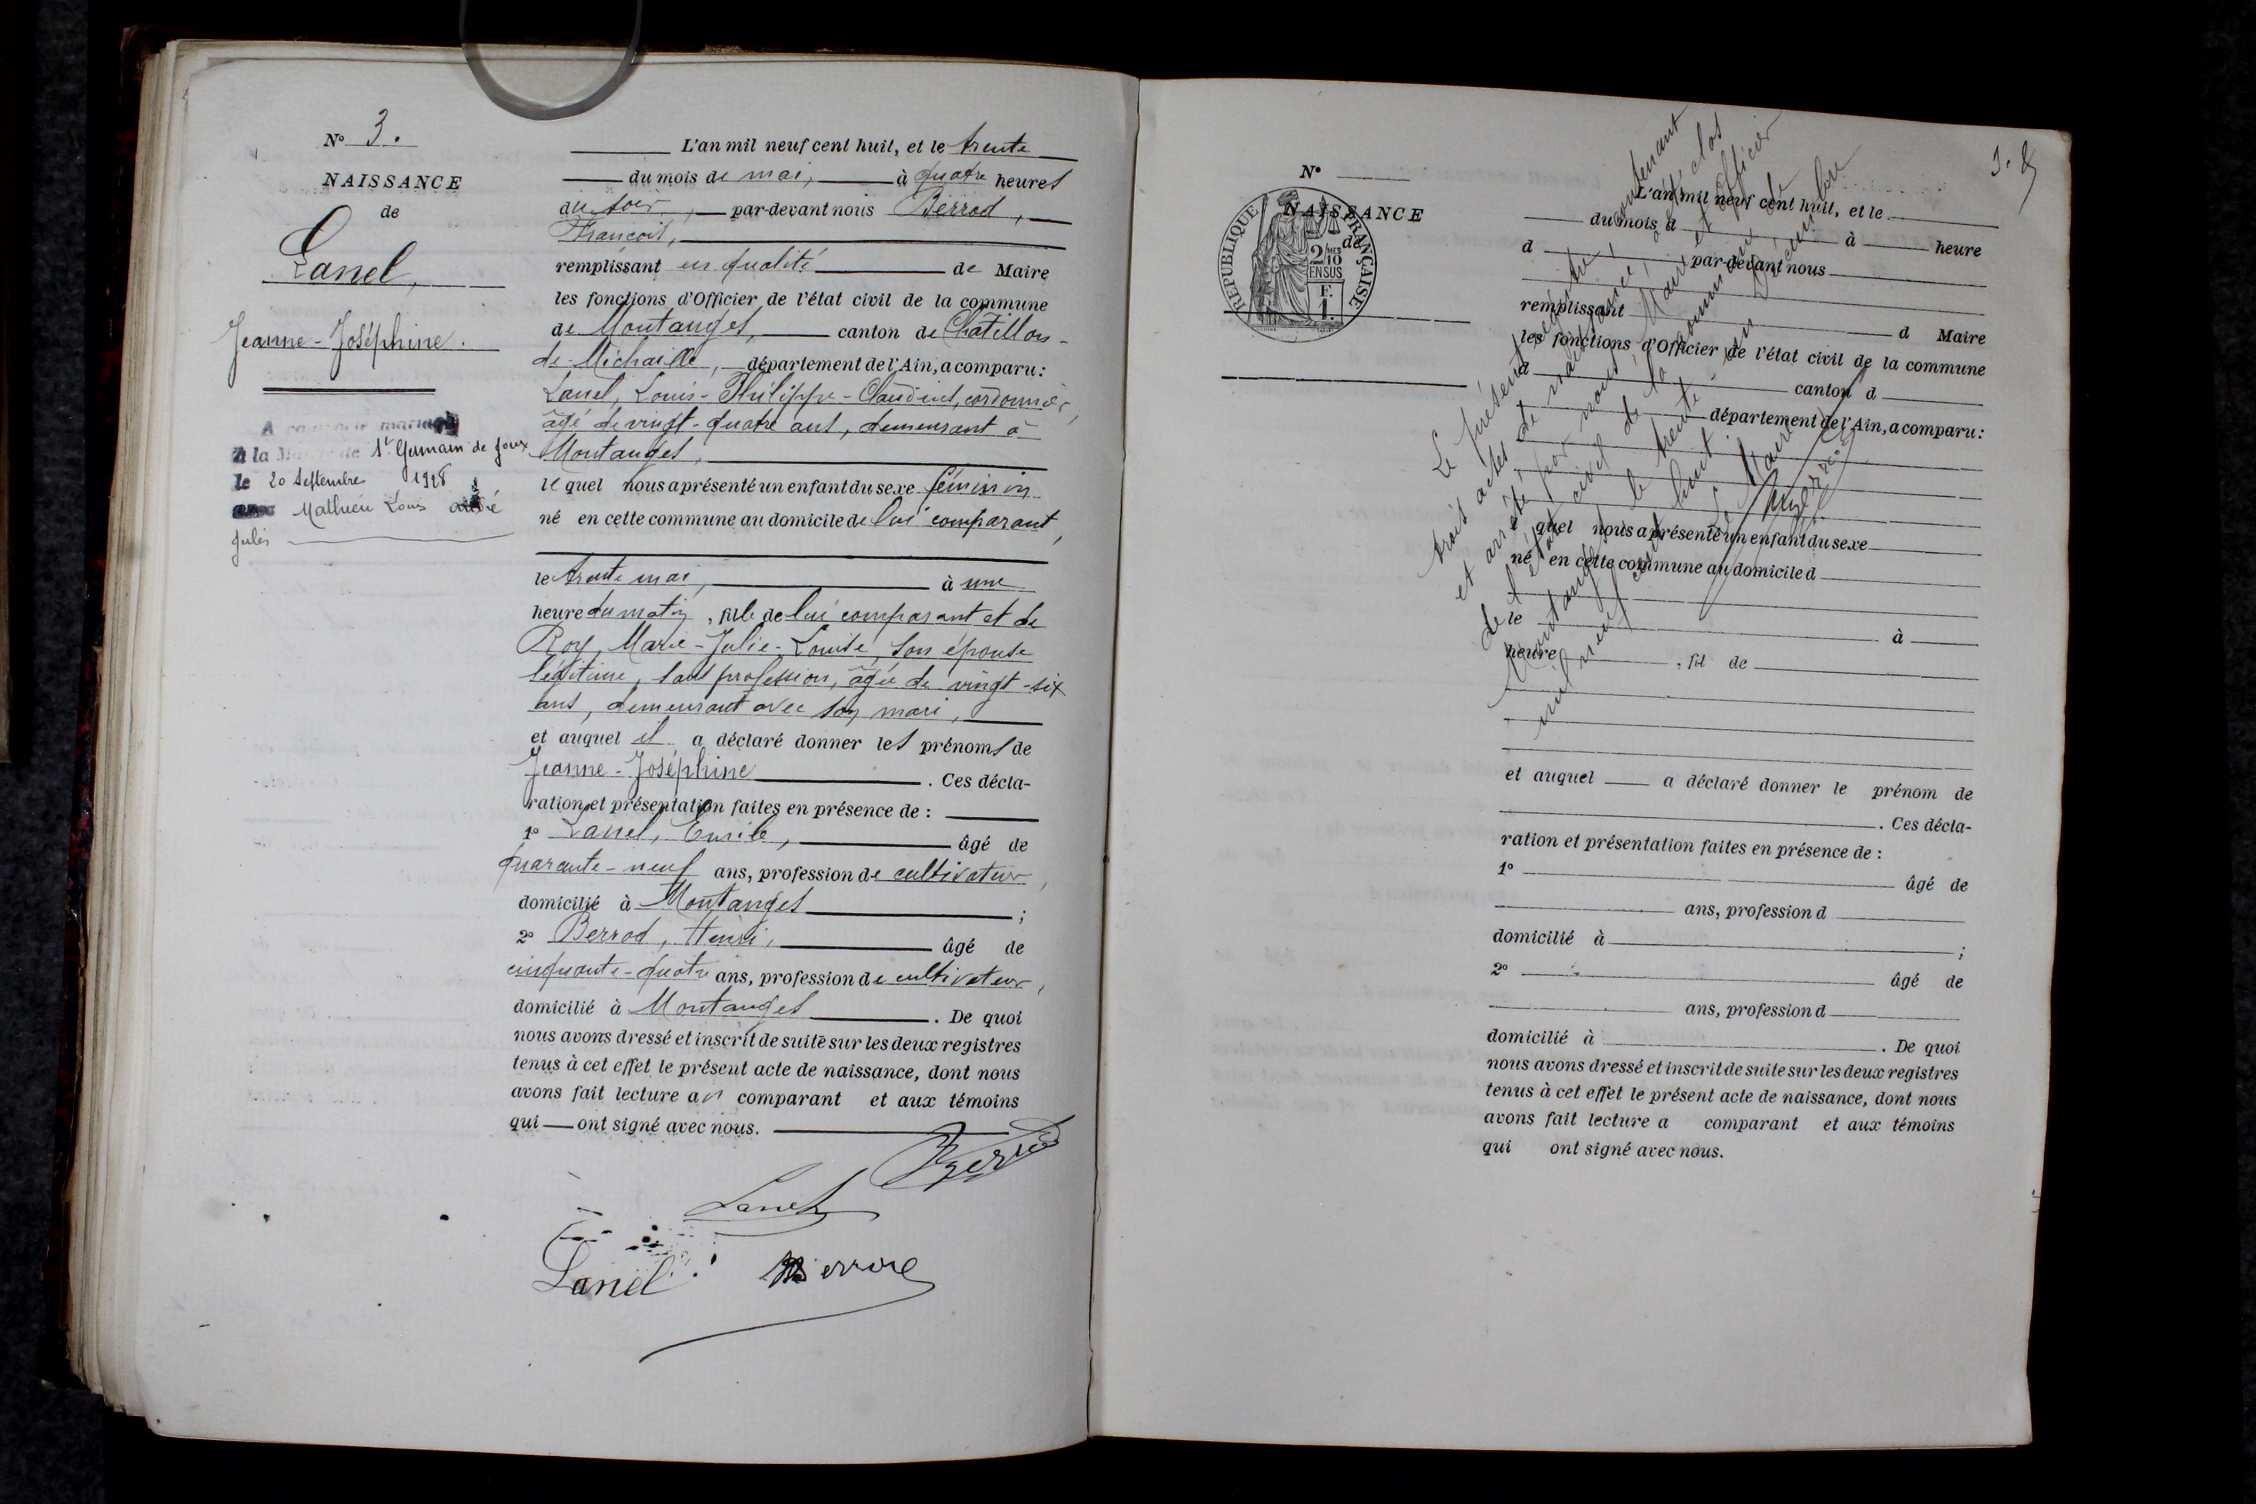 N° 3.
NAISSANCE
de
Lanel,
Jeanne-Joséphine.
A contracté mariage
A la Mairie de St Germain de Joux
le 20 Septembre 1928
avec Mathieu Louis André
Jules
L'an mil neuf cent huit, et le trente
du mois de mai, à quatre heures
du soir, par-devant nous Berrod,
François,
remplissant en qualité de Maire
les fonctions d'Officier de l'état civil de la commune
de Montanges, canton de Châtillon-
de-Michaille, département de l'Ain, a comparu:
Lanel, Louis-Philippe-Claudius, cordonnier,
âgé de vingt-quatre ans, demeurant à
Montanges,
lequel nous a présenté un enfant du sexe féminin
né en cette commune au domicile de lui comparant,
le trente mai, à une
heure du matin, fille de lui comparant et de
Roy, Marie-Julie-Louise, son épouse
légitime, sans profession, âgée de vingt-six
ans, demeurant avec son mari,
et auquel il a déclaré donner les prénoms de
Jeanne-Joséphine. Ces décla-
ration et présentation faites en présence de :
1° Lanel, Emile, âgé de
quarante-neuf ans, profession de cultivateur,
domicilié à Montanges ;
2° Berrod, Henri, âgé de
cinquante-quatre ans, profession de cultivateur,
domicilié à Montanges. De quoi
nous avons dressé et inscrit de suite sur les deux registres
tenus à cet effet le présent acte de naissance, dont nous
avons fait lecture au comparant et aux témoins
qui ont signé avec nous.
Berrod
Lanel
Lanel
N°
NAISSANCE
de
RÉPUBLIQUE FRANÇAISE
2/10
EN SUS
F.
1.
L'an mil neuf cent huit, et le
du mois d à heure
d par-devant nous
remplissant d Maire
les fonctions d'Officier de l'état civil de la commune
d canton d
département de l'Ain, a comparu:
quel nous a présenté un enfant du sexe
né en cette commune au domicile d
le à
heure , fil de
et auquel a déclaré donner le prénom de
. Ces décla-
ration et présentation faites en présence de :
1° âgé de
ans, profession d
domicilié à ;
2° âgé de
ans, profession d
domicilié à . De quoi
nous avons dressé et inscrit de suite sur les deux registres
tenus à cet effet le présent acte de naissance, dont nous
avons fait lecture a comparant et aux témoins
qui ont signé avec nous.
Le présent registre, contenant
trois actes de naissance, a été clos
et arrêté par nous, Maire et officier
de l'état civil de la commune de
Montanges le trente un Décembre
mil neuf cent huit
Le Maire
Berrod